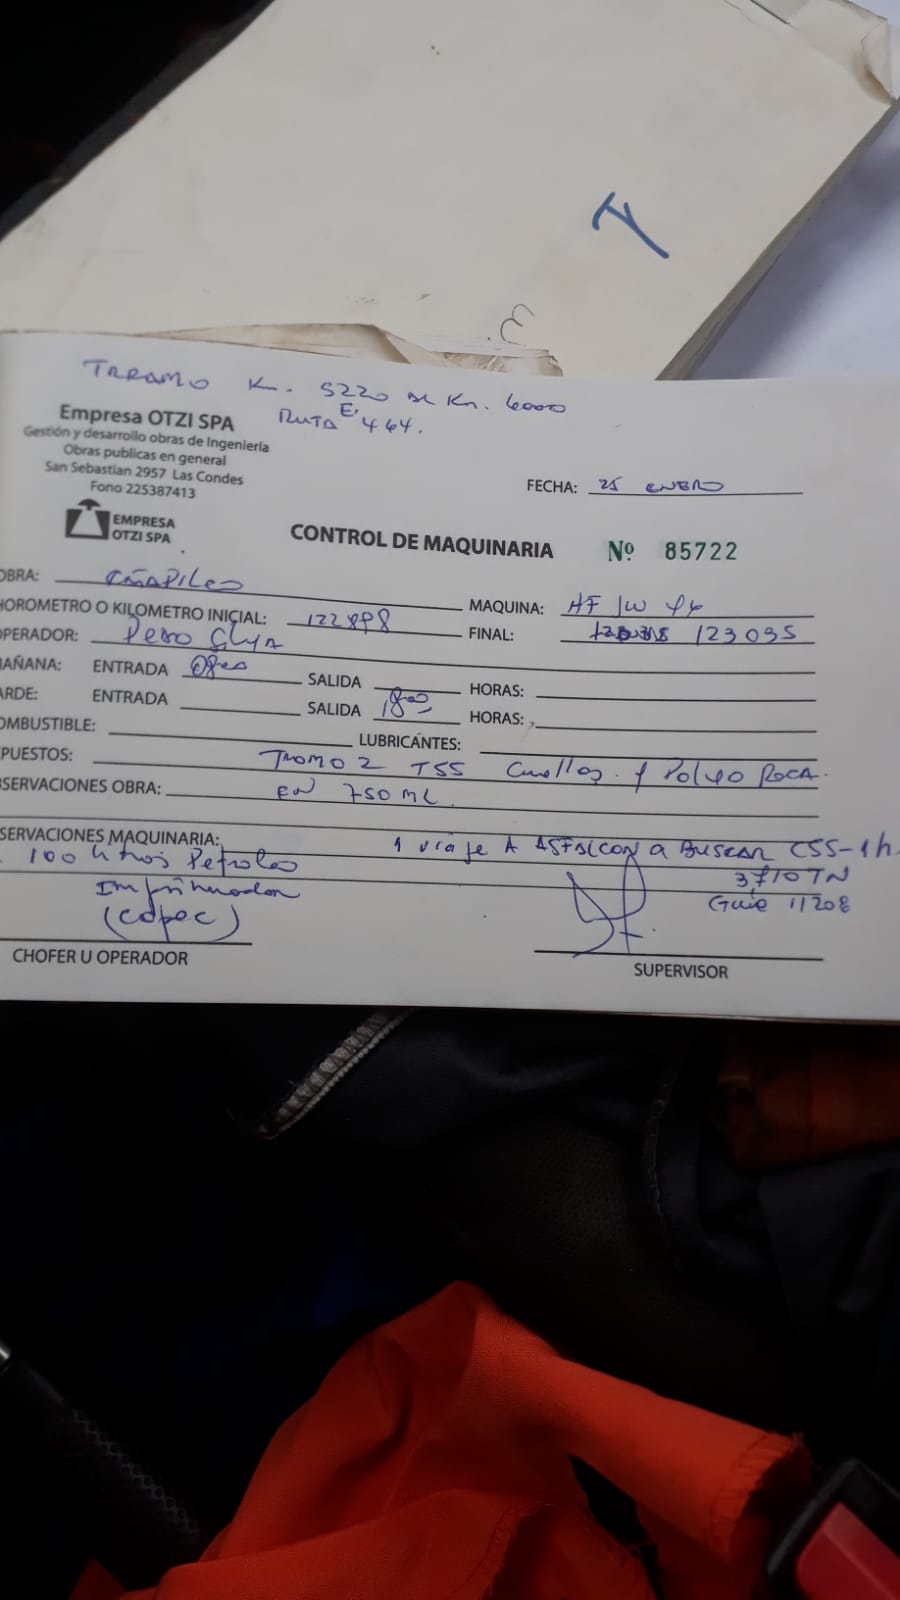 T
TRAMO Km. 5220 AL Km. 6000
RUTA E' 464.
Empresa OTZI SPA
Gestión y desarrollo obras de Ingeniería
Obras publicas en general
San Sebastían 2957 Las Condes
Fono 225387413
EMPRESA
OTZI SPA
FECHA: 25 ENERO
CONTROL DE MAQUINARIA Nº 85722
OBRA:
MAQUINA:
HOROMETRO O KILOMETRO INICIAL:
FINAL: 123035
OPERADOR:
MAÑANA: ENTRADA SALIDA HORAS:
ARDE: ENTRADA SALIDA 1800 HORAS:
OMBUSTIBLE: LUBRICANTES:
PUESTOS: TRAMO 2 TSS y Polvo ROCA.
SERVACIONES OBRA: EN 750 ML.
SERVACIONES MAQUINARIA: 1 viaje A ASFALCON a BUSCAR CSS-1h.
100 litros Petroleo
3,710 TN
Imprimador
Guia 11208
(copec)
CHOFER U OPERADOR
SUPERVISOR